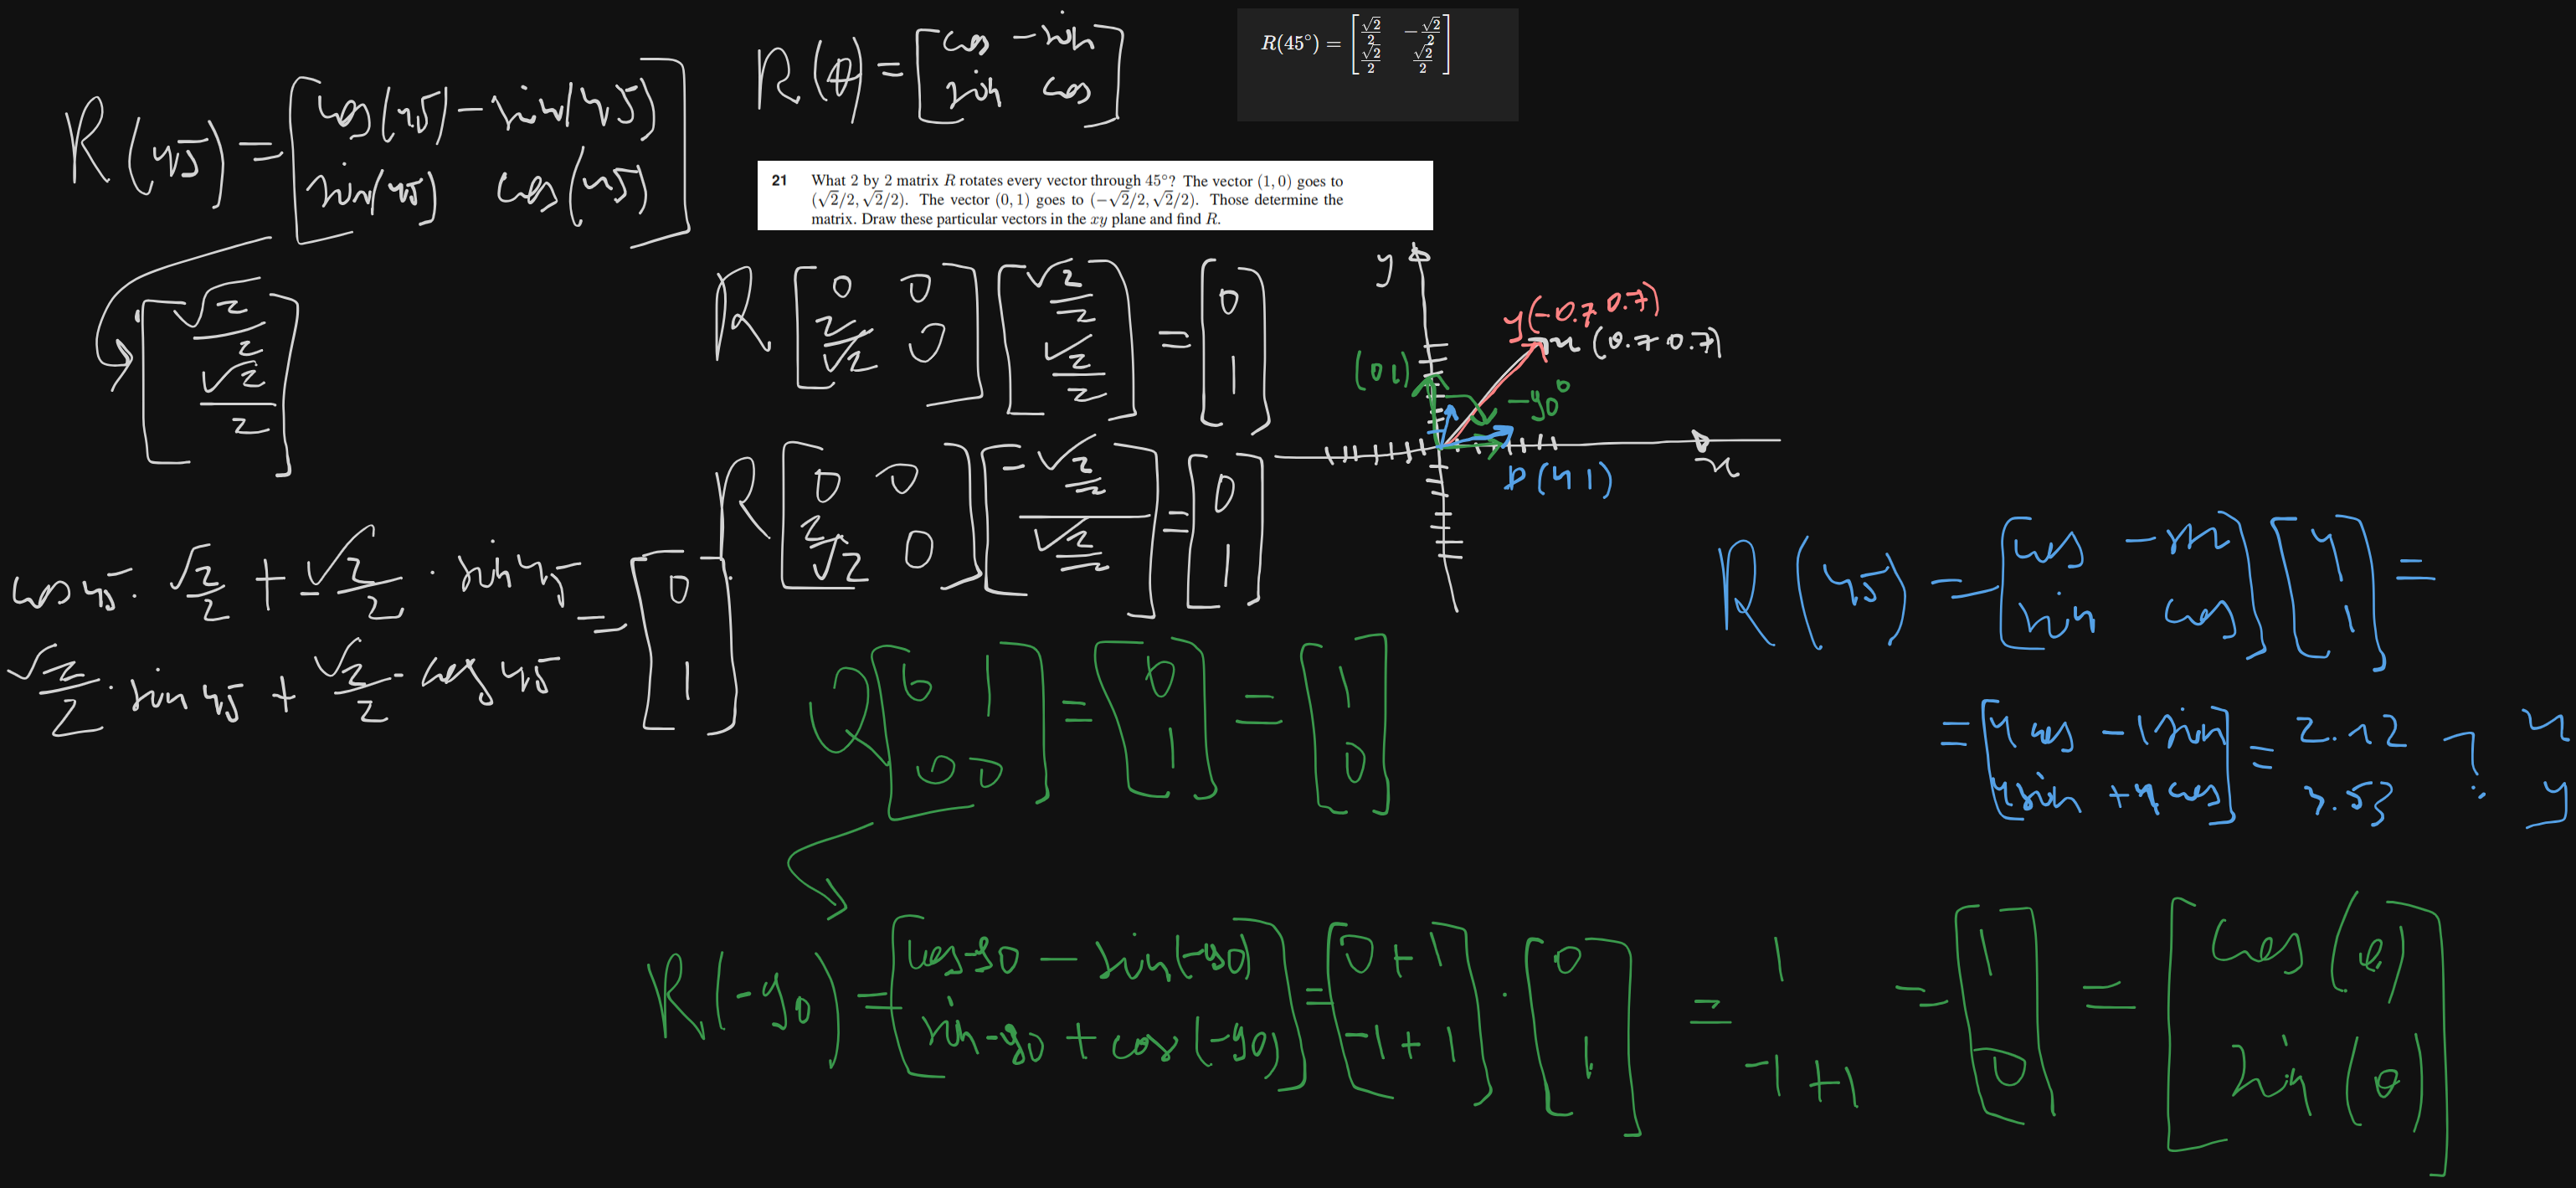 R(θ) = [cos -sin
sin cos]
R(45°) = [√2/2 -√2/2
√2/2 √2/2]
R(45) = [cos(45) -sin(45)
sin(45) cos(45)]
[√2/2
√2/2]
21 What 2 by 2 matrix R rotates every vector through 45°? The vector (1, 0) goes to
(√2/2, √2/2). The vector (0, 1) goes to (−√2/2, √2/2). Those determine the
matrix. Draw these particular vectors in the xy plane and find R.
R [0 0
2/√2 0] [√2/2
√2/2] = [0
1]
R [0 0
2/√2 0] [-√2/2
√2/2] = [0
1]
y
y(-0.7 0.7)
x (0.7 0.7)
(0 1)
-90°
b (4 1)
x
cos 45 · √2/2 + -√2/2 · sin 45 = [0
√2/2 · sin 45 + √2/2 · cos 45 1]
R(45) = [cos -sin
sin cos] [4
1] =
= [4 cos -1 sin
4 sin +4 cos] = 2.12 ? x
3.53 y
Q [0 1
0 0] = [0
1] = [1
0]
R(-90) = [cos -90 - sin(-90)
sin -90 + cos(-90)] = [0 + 1
-1 + 1] · [0
1] = 1
-1 + 1 = [1
0] = [cos(θ)
sin(θ)]